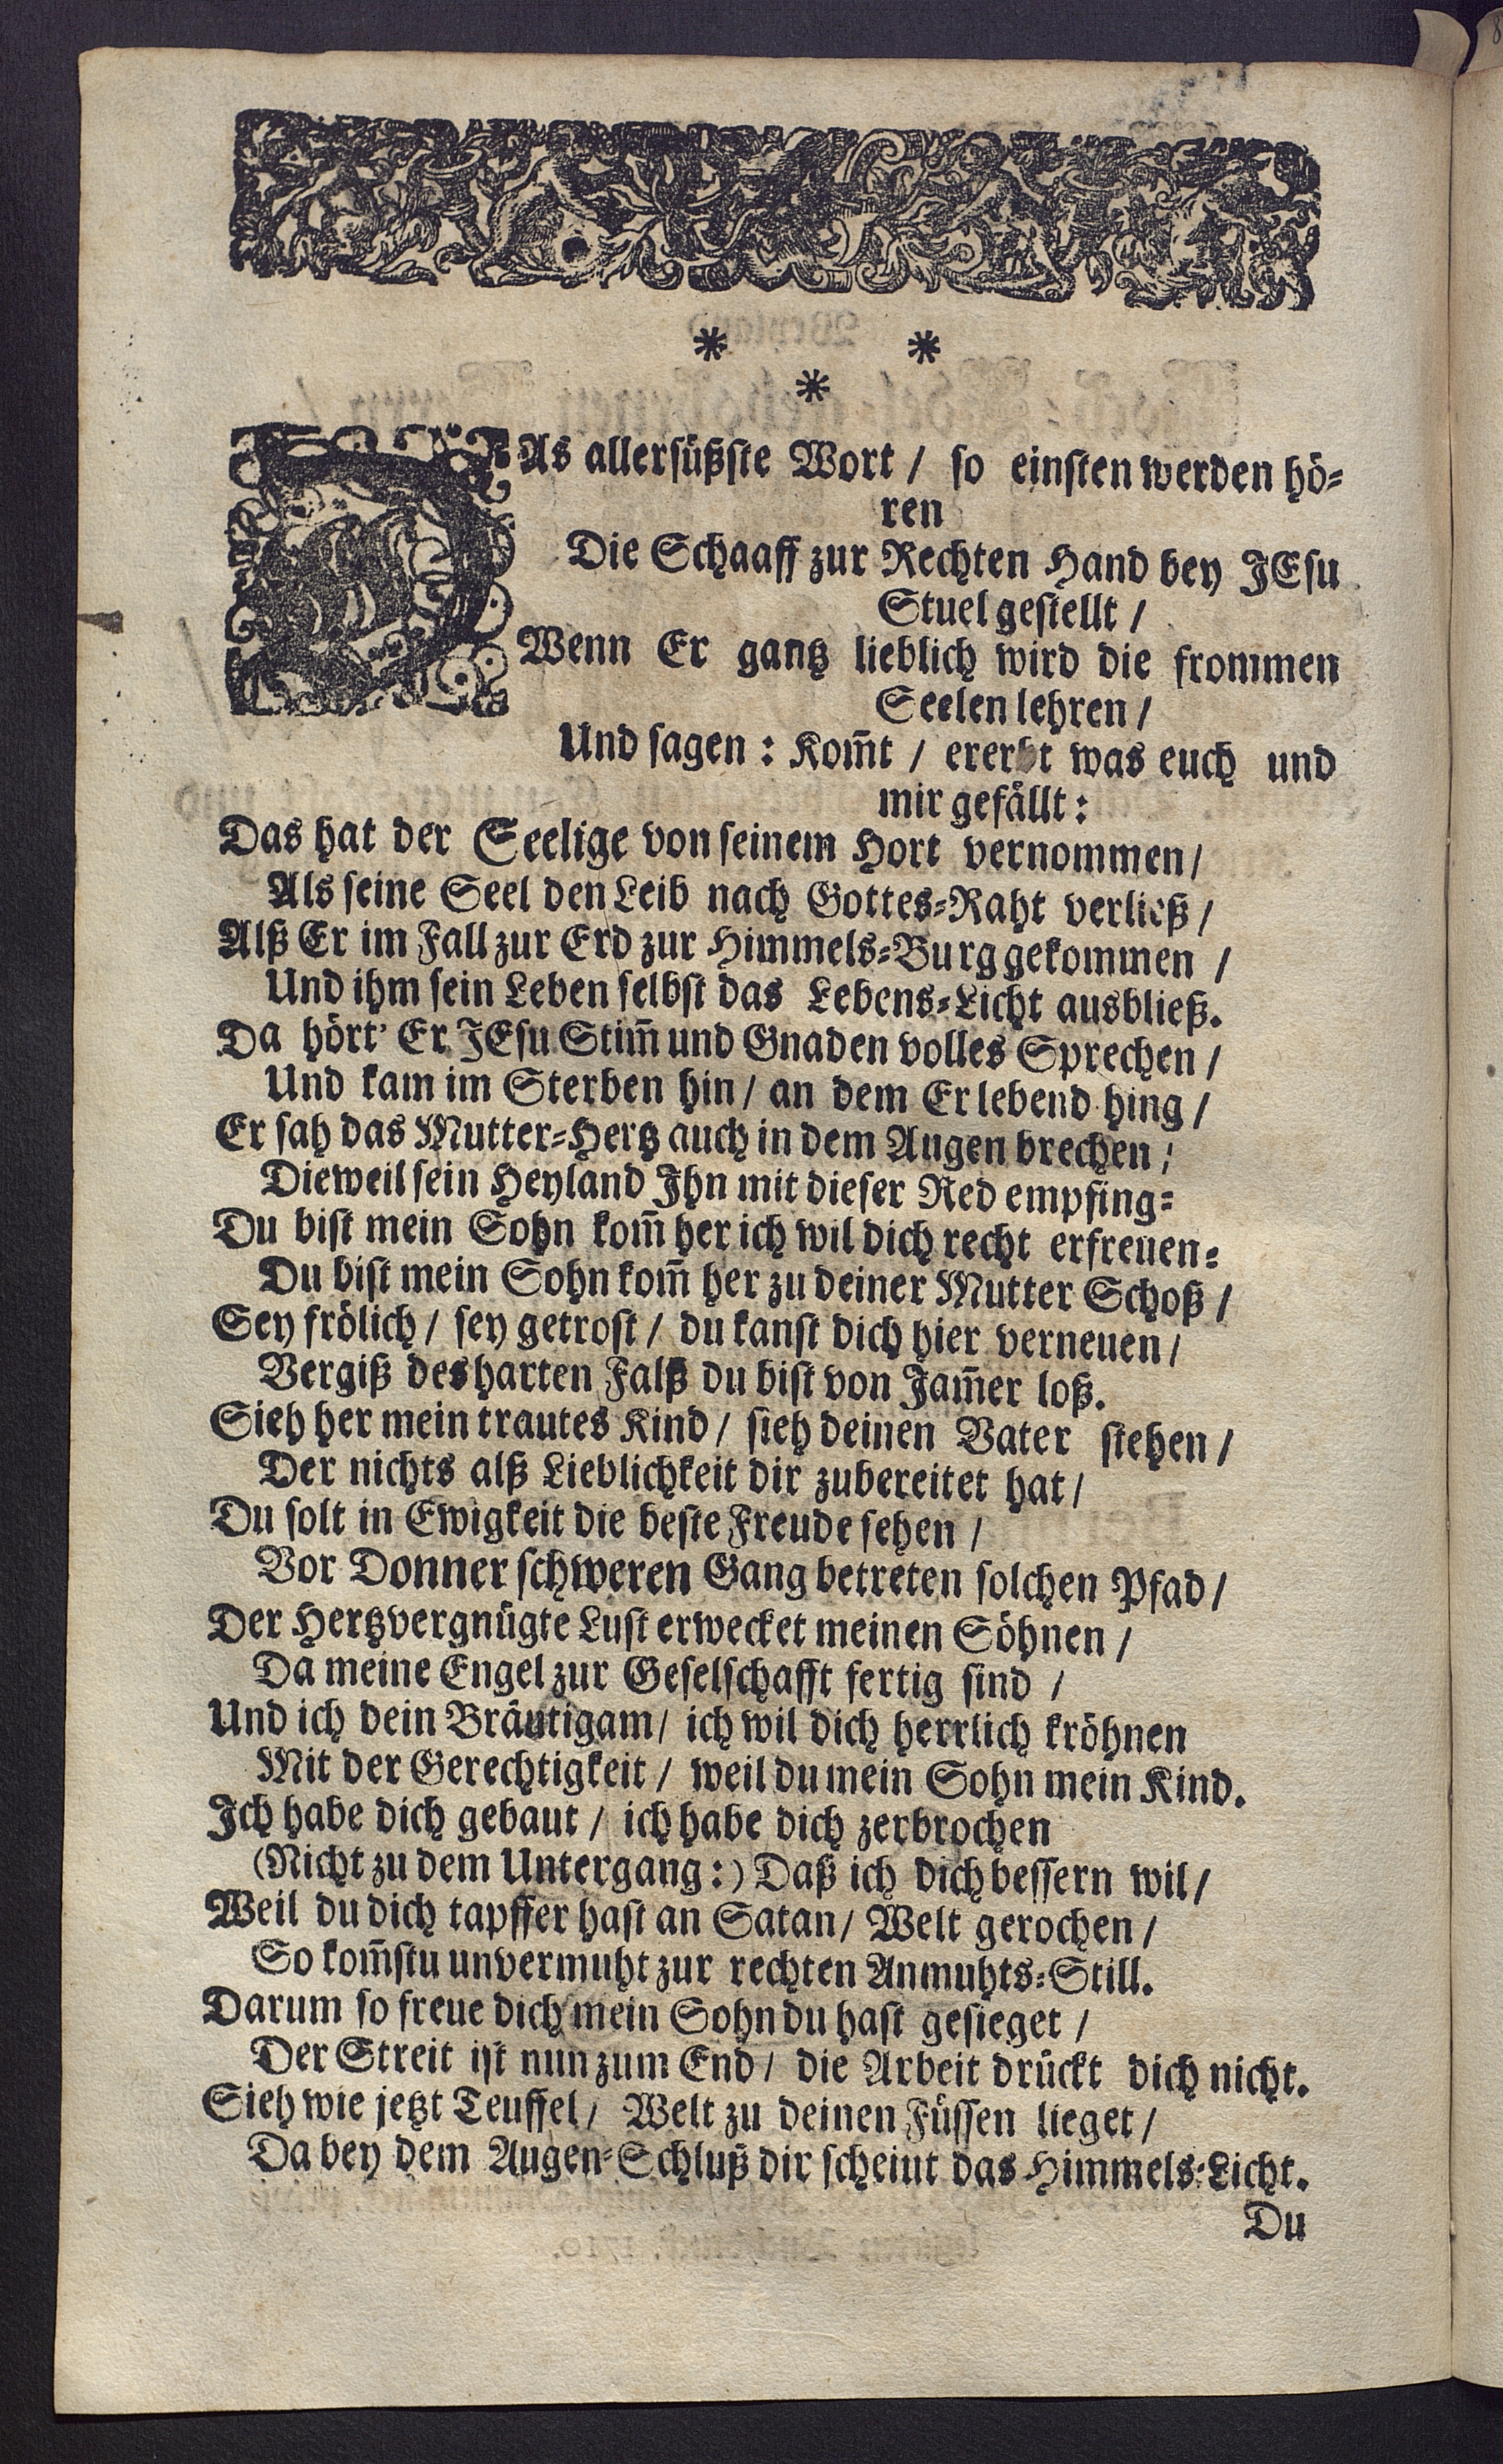 * *
*
DAs allersüßste Wort / so einsten werden hö-
ren
Die Schaaff zur Rechten Hand bey JEsu
Stuel gestellt /
Wenn Er gantz lieblich wird die frommen
Seelen lehren /
Und sagen : Kom̃t / ererbt was euch und
mir gefällt :
Das hat der Seelige von seinem Hort vernommen /
Als seine Seel den Leib nach Gottes-Raht verließ /
Alß Er im Fall zur Erd zur Himmels-Burg gekommen /
Und ihm sein Leben selbst das Lebens-Licht ausbließ.
Da hört' Er JEsu Stim̃ und Gnaden volles Sprechen /
Und kam im Sterben hin / an dem Er lebend hing /
Er sah das Mutter-Hertz auch in dem Augen brechen ;
Dieweil sein Heyland Ihn mit dieser Red empfing-
Du bist mein Sohn kom̃ her ich wil dich recht erfreuen-
Du bist mein Sohn kom̃ her zu deiner Mutter Schoß /
Sey frölich / sey getrost / du kanst dich hier verneuen /
Vergiß des harten Falß du bist von Jam̃er loß.
Sieh her mein trautes Kind / sieh deinen Vater stehen /
Der nichts alß Lieblichkeit dir zubereitet hat /
Du solt in Ewigkeit die beste Freude sehen /
Vor Donner schweren Gang betreten solchen Pfad /
Der Hertzvergnügte Lust erwecket meinen Söhnen /
Da meine Engel zur Geselschafft fertig sind /
Und ich dein Bräutigam / ich wil dich herrlich kröhnen
Mit der Gerechtigkeit / weil du mein Sohn mein Kind.
Ich habe dich gebaut / ich habe dich zerbrochen
(Nicht zu dem Untergang :) Daß ich dich bessern wil /
Weil du dich tapffer hast an Satan / Welt gerochen /
So kom̃stu unvermuht zur rechten Anmuhts-Still.
Darum so freue dich mein Sohn du hast gesieget /
Der Streit ist nun zum End / die Arbeit drückt dich nicht.
Sieh wie jetzt Teuffel / Welt zu deinen Füssen lieget /
Da bey dem Augen-Schluß dir scheint das Himmels-Licht.
Du